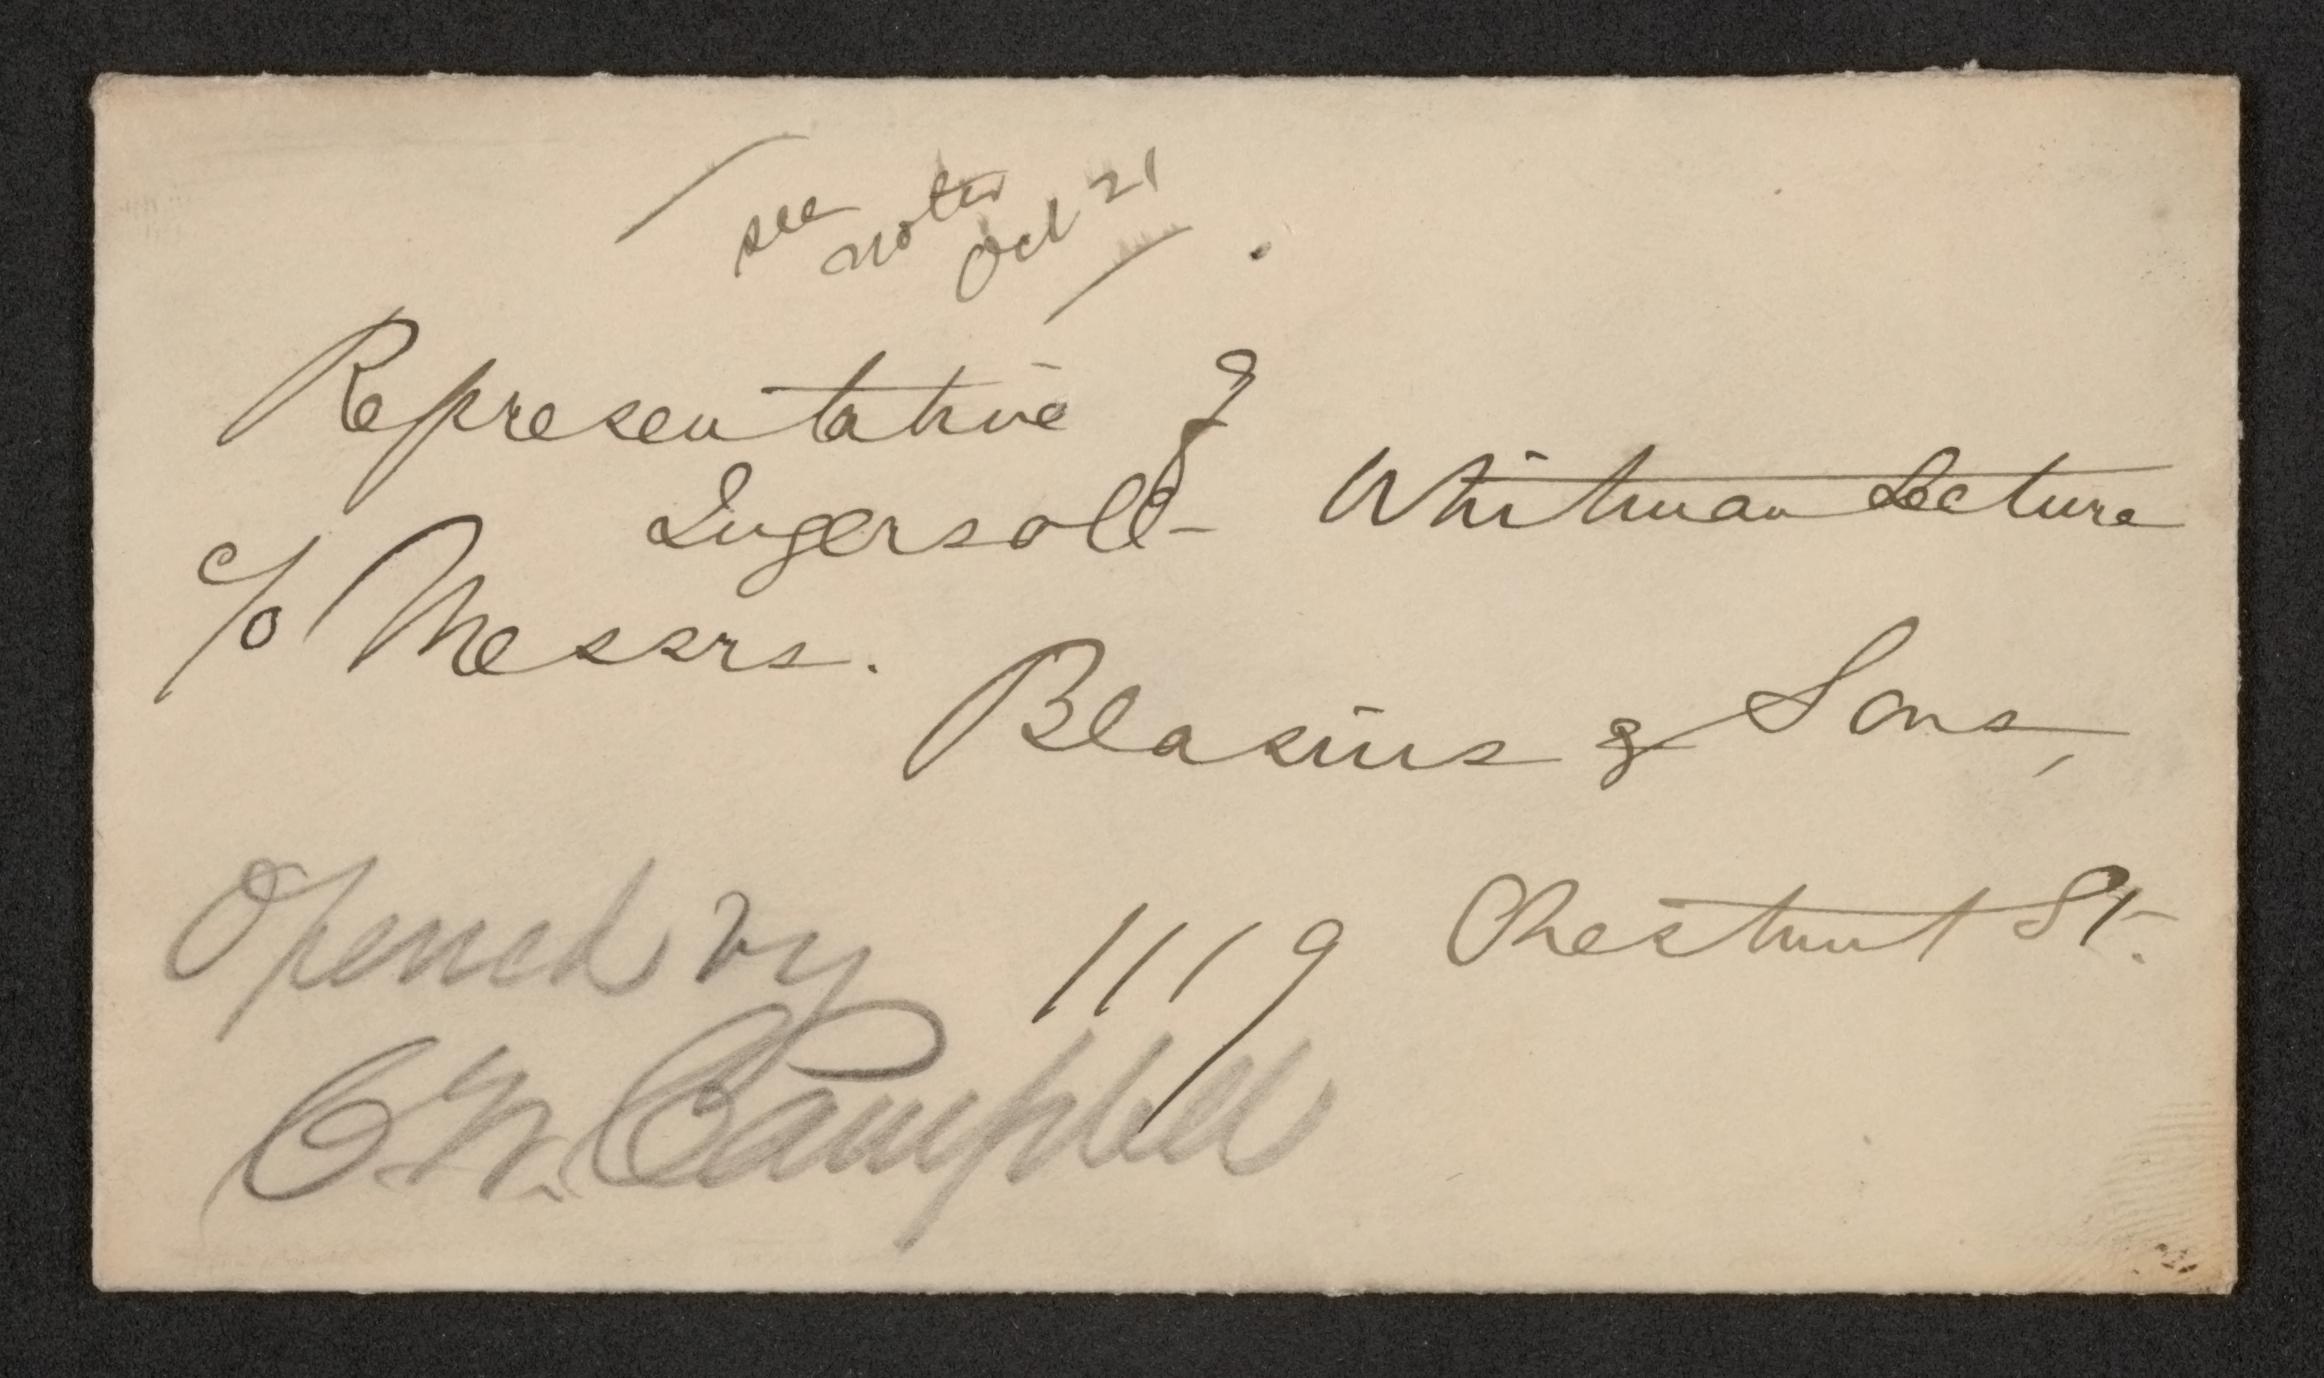 see
notes
Oct 21
Representative of
Ingersoll - Whitman Lecture
c/o Messrs.
Blasius & Sons,
1119 Chestnut St.
Opened by
C. N. Campbell